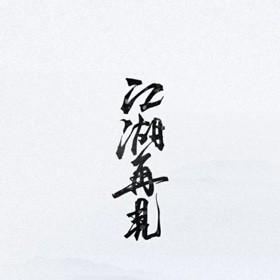 江湖再見